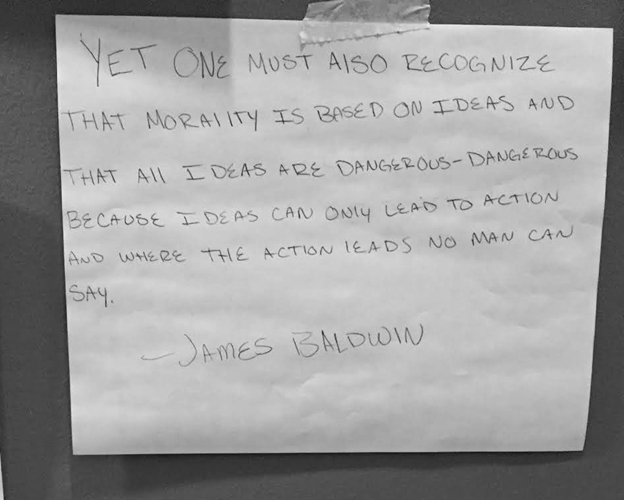 YET ONE MUST ALSO RECOGNIZE
THAT MORALITY IS BASED ON IDEAS AND
THAT All IDEAS ARE DANGEROUS-DANGEROUS
BECAUSE IDEAS CAN ONLY LEAD TO ACTION
AND WHERE THE ACTION LEADS NO MAN CAN
SAY.
-JAMES BALDWIN